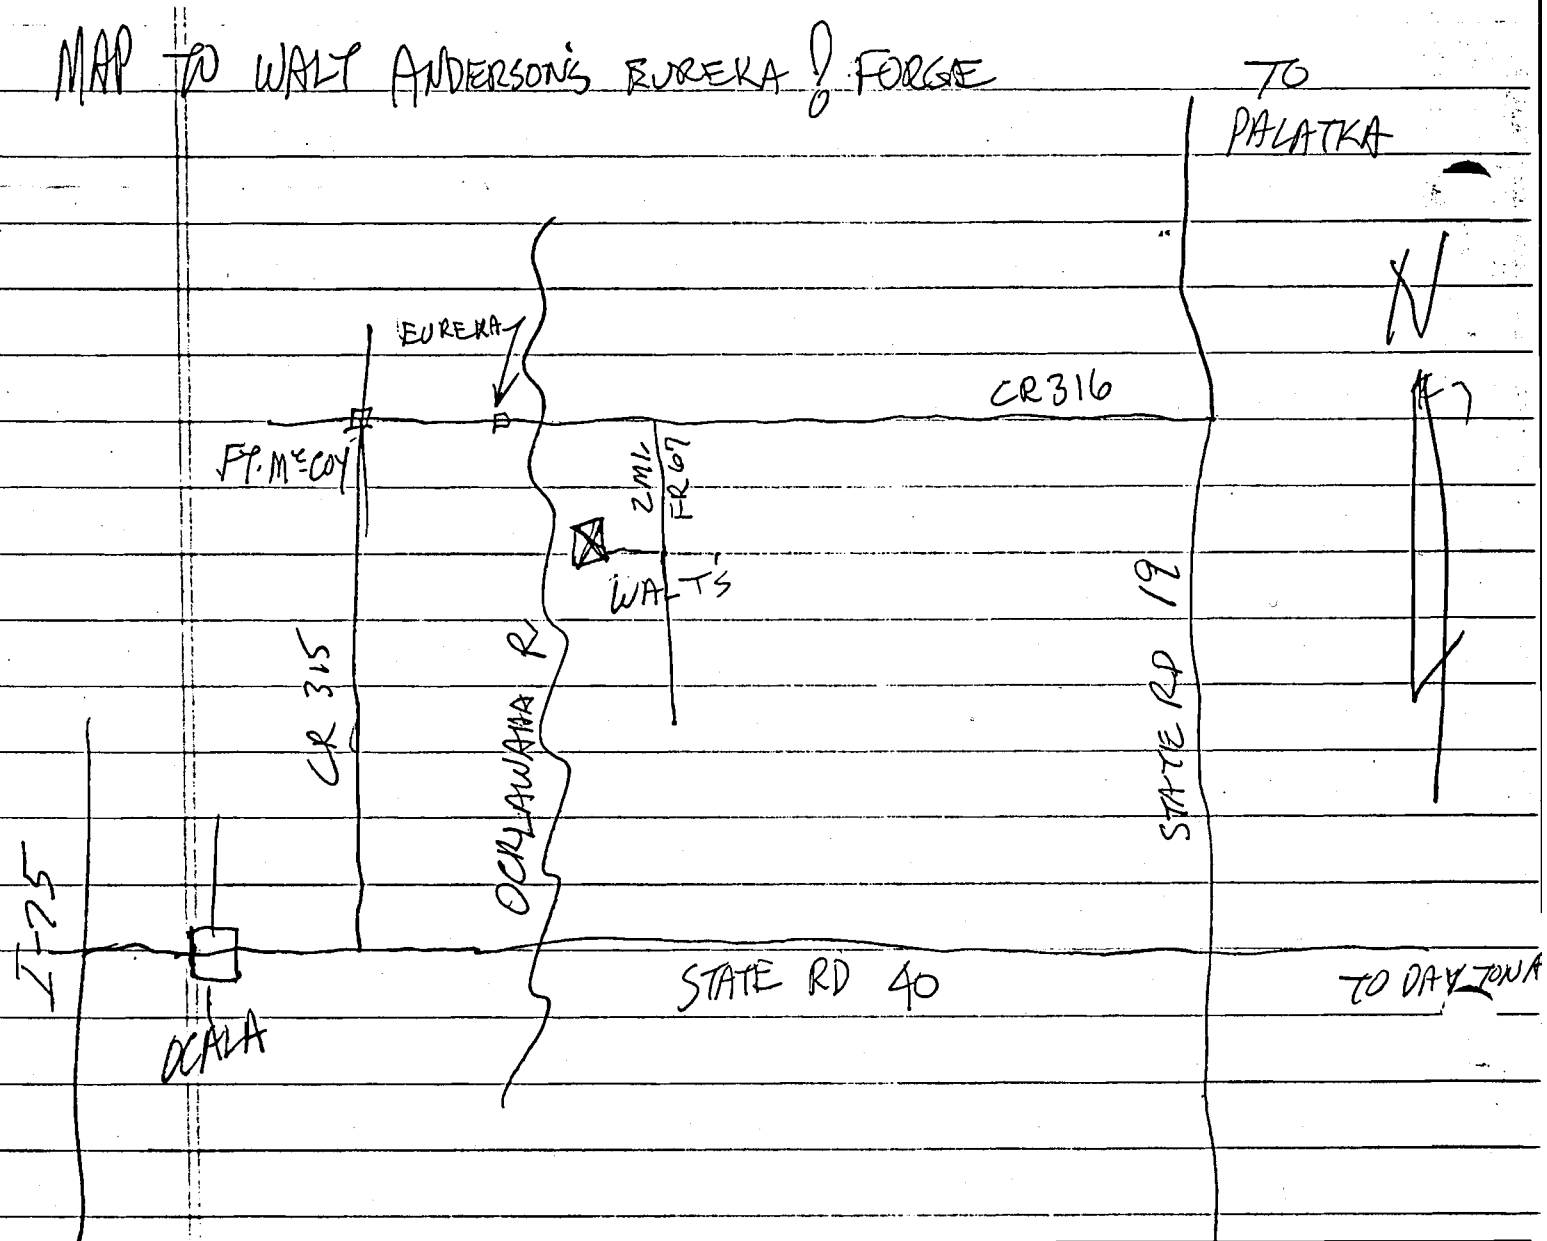 MAP TO WALT ANDERSON'S EUREKA! FORGE
TO
PALATKA
N
EUREKA
CR 316
FT. McCOY
2 MI.
FR 67
WALT'S
CR 315
OCKLAWAHA R.
STATE RD 19
I-75
STATE RD 40
TO DAYTONA
OCALA